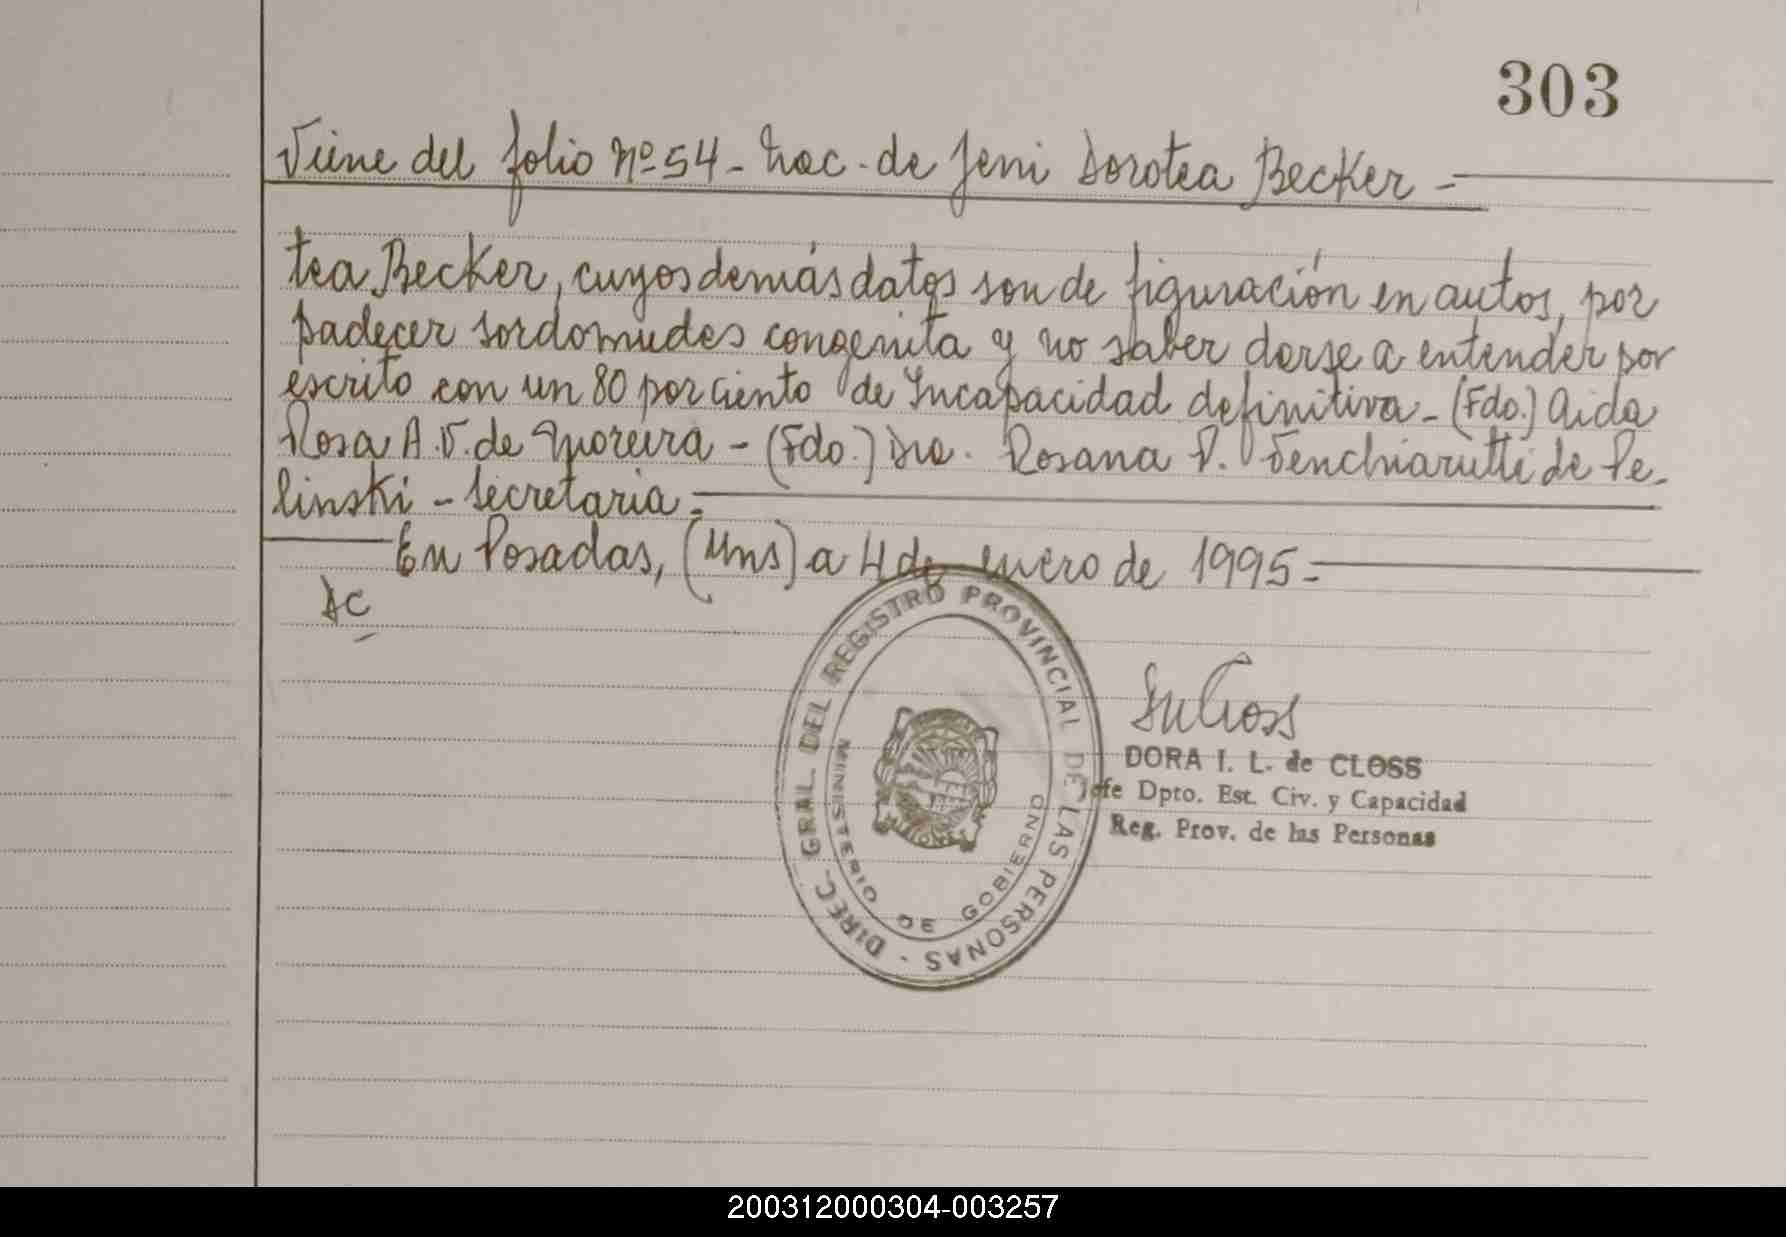 303
Viene del folio Nº 54 - Nac. de Jeni Dorotea Becker -
tea Becker, cuyos demás datos son de figuración en autos, por
padecer sordomudes congenita y no saber darse a entender por
escrito con un 80 por ciento de Incapacidad definitiva - (Fdo.) Aida
Rosa A. V. de Moreira - (Fdo.) Dra. Rosana P. Venchiarutti de Pe-
linski - Secretaria -
En Posadas, (Mns) a 4 de enero de 1995 -
DIREC. GRAL. DEL REGISTRO PROVINCIAL DE LAS PERSONAS
MINISTERIO DE GOBIERNO
DORA I. L. de CLOSS
Jefe Dpto. Est. Civ. y Capacidad
Reg. Prov. de las Personas
200312000304-003257